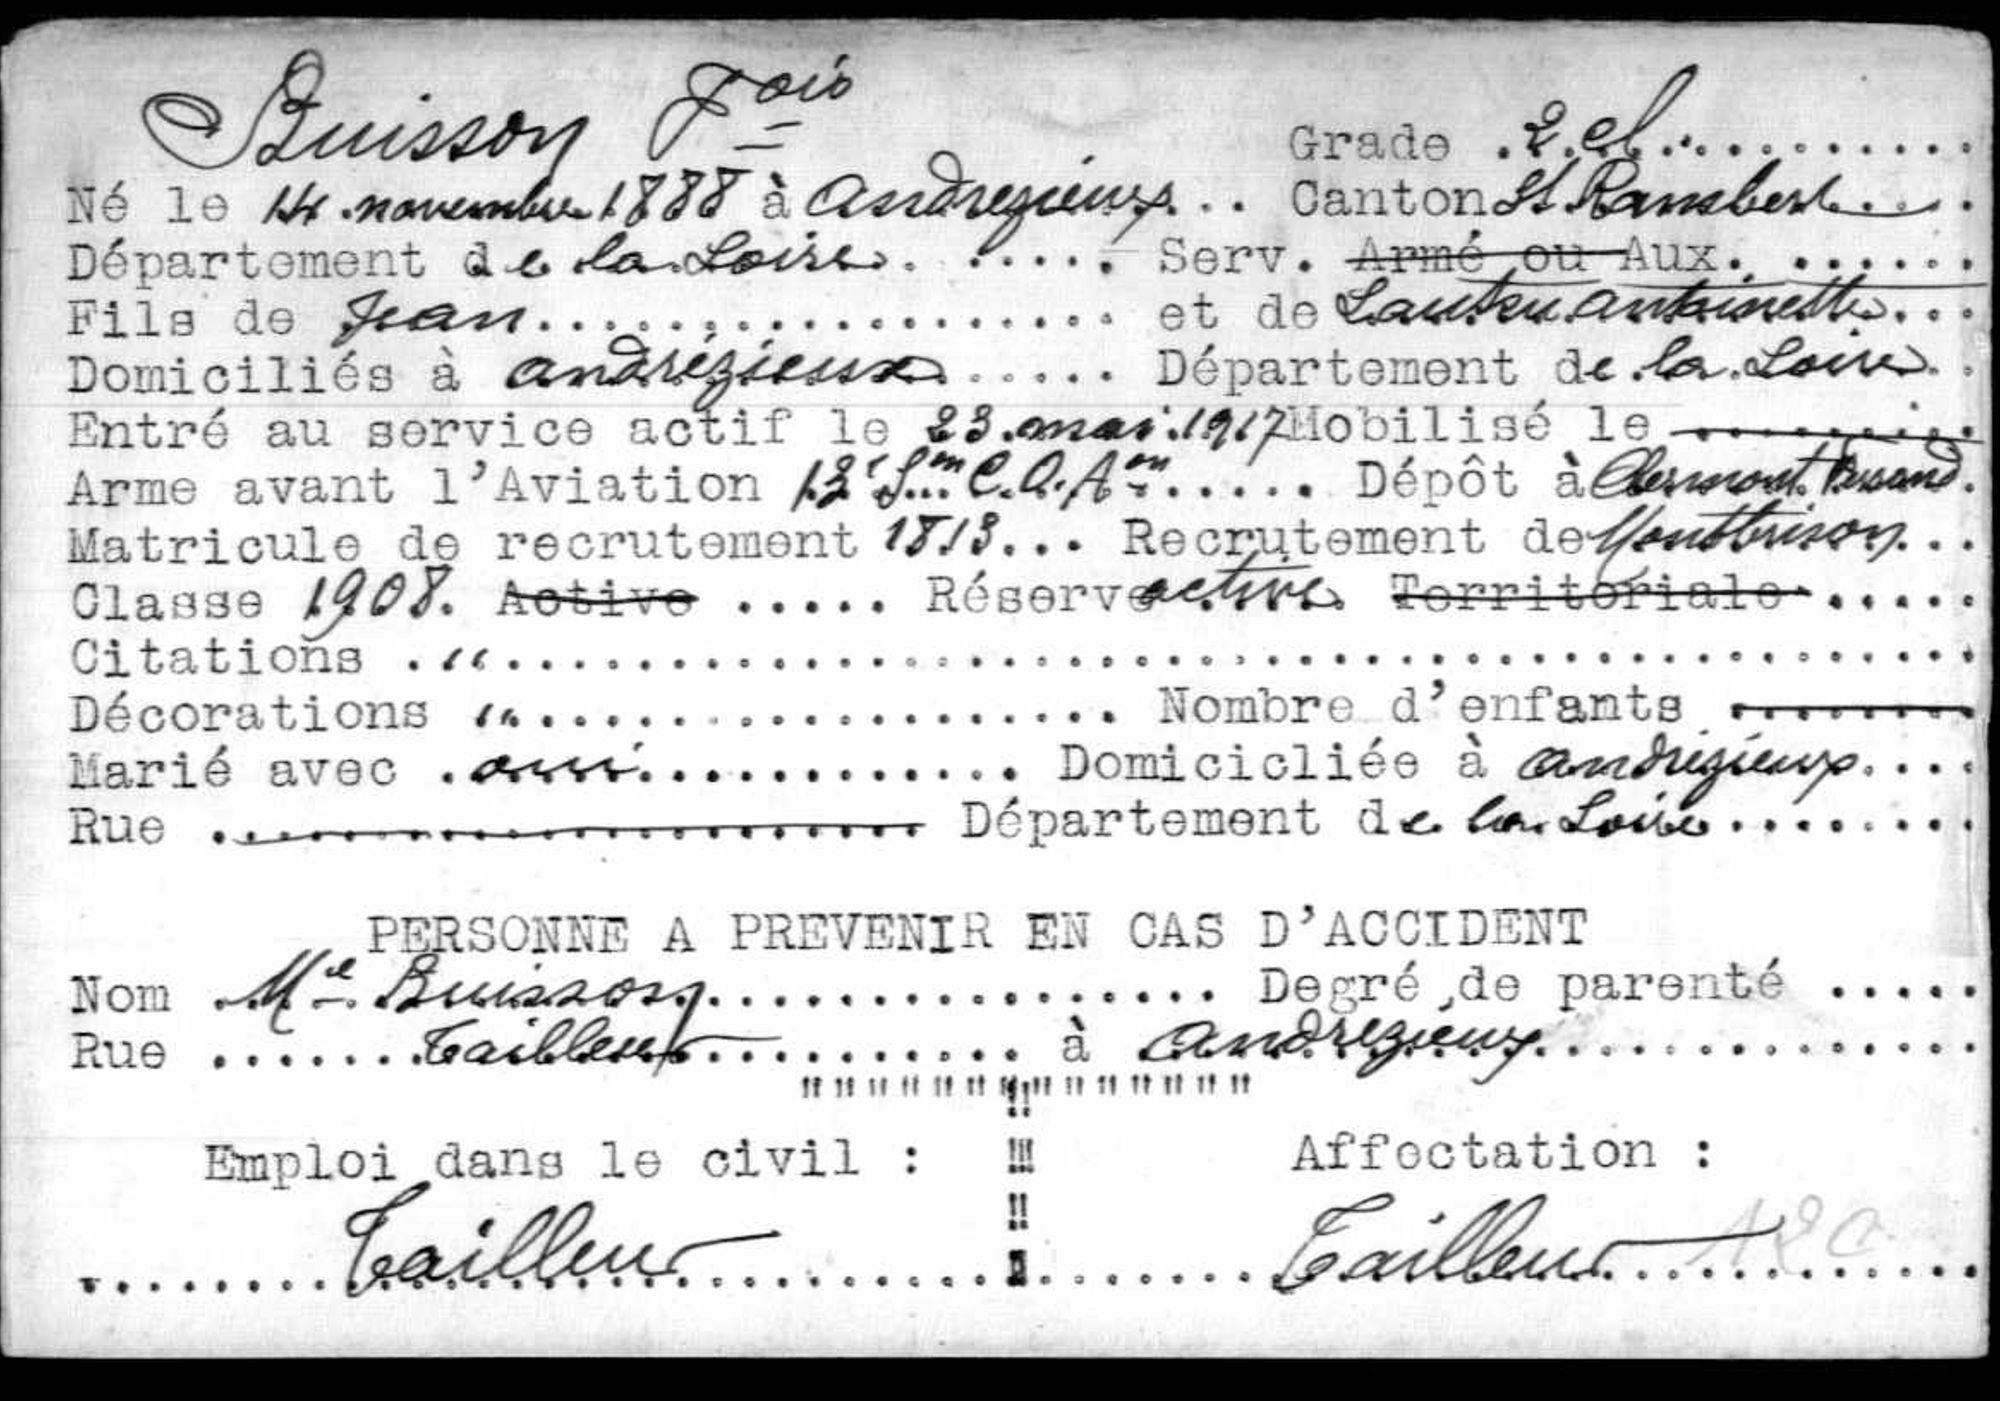 Buisson Fois
Grade 2. cl.
Né le 14 novembre 1888 à Andrezieux Canton St Rambert
Département de la Loire Serv. Armé ou Aux.
Fils de Jean et de Antoinette
Domiciliés à Andrézieux Département de la Loire
Entré au service actif le 23 mai 1917 Mobilisé le
Arme avant l'Aviation 13e Son C.O.Aon Dépôt à Clermont Ferrand
Matricule de recrutement 1813 Recrutement de Montbrison
Classe 1908. Active Réserve active Territoriale
Citations "
Décorations " Nombre d'enfants
Marié avec oui Domicicliée à Andrézieux
Rue Département de la Loire
PERSONNE A PREVENIR EN CAS D'ACCIDENT
Nom Buisson Degré de parenté
Rue Tailleur à Andrezieux
Emploi dans le civil : Affectation :
Tailleur Tailleur